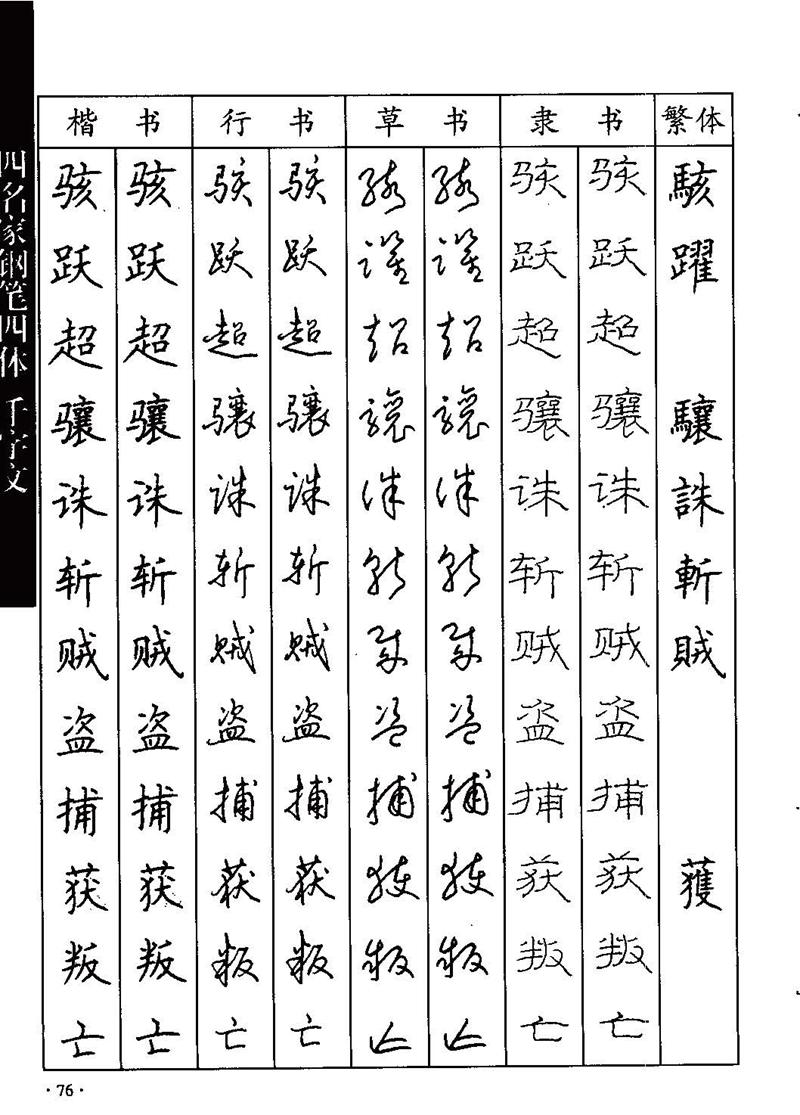 四名家钢笔四体 千字文
楷书 行书 草书 隶书 繁体
骇 骇 骇 骇 骇 骇 骇 骇 駭
跃 跃 跃 跃 跃 跃 跃 跃 躍
超 超 超 超 超 超 超 超
骧 骧 骧 骧 骧 骧 骧 骧 驤
诛 诛 诛 诛 诛 诛 诛 诛 誅
斩 斩 斩 斩 斩 斩 斩 斩 斬
贼 贼 贼 贼 贼 贼 贼 贼 賊
盗 盗 盗 盗 盗 盗 盗 盗
捕 捕 捕 捕 捕 捕 捕 捕
获 获 获 获 获 获 获 获 獲
叛 叛 叛 叛 叛 叛 叛 叛
亡 亡 亡 亡 亡 亡 亡 亡
·76·